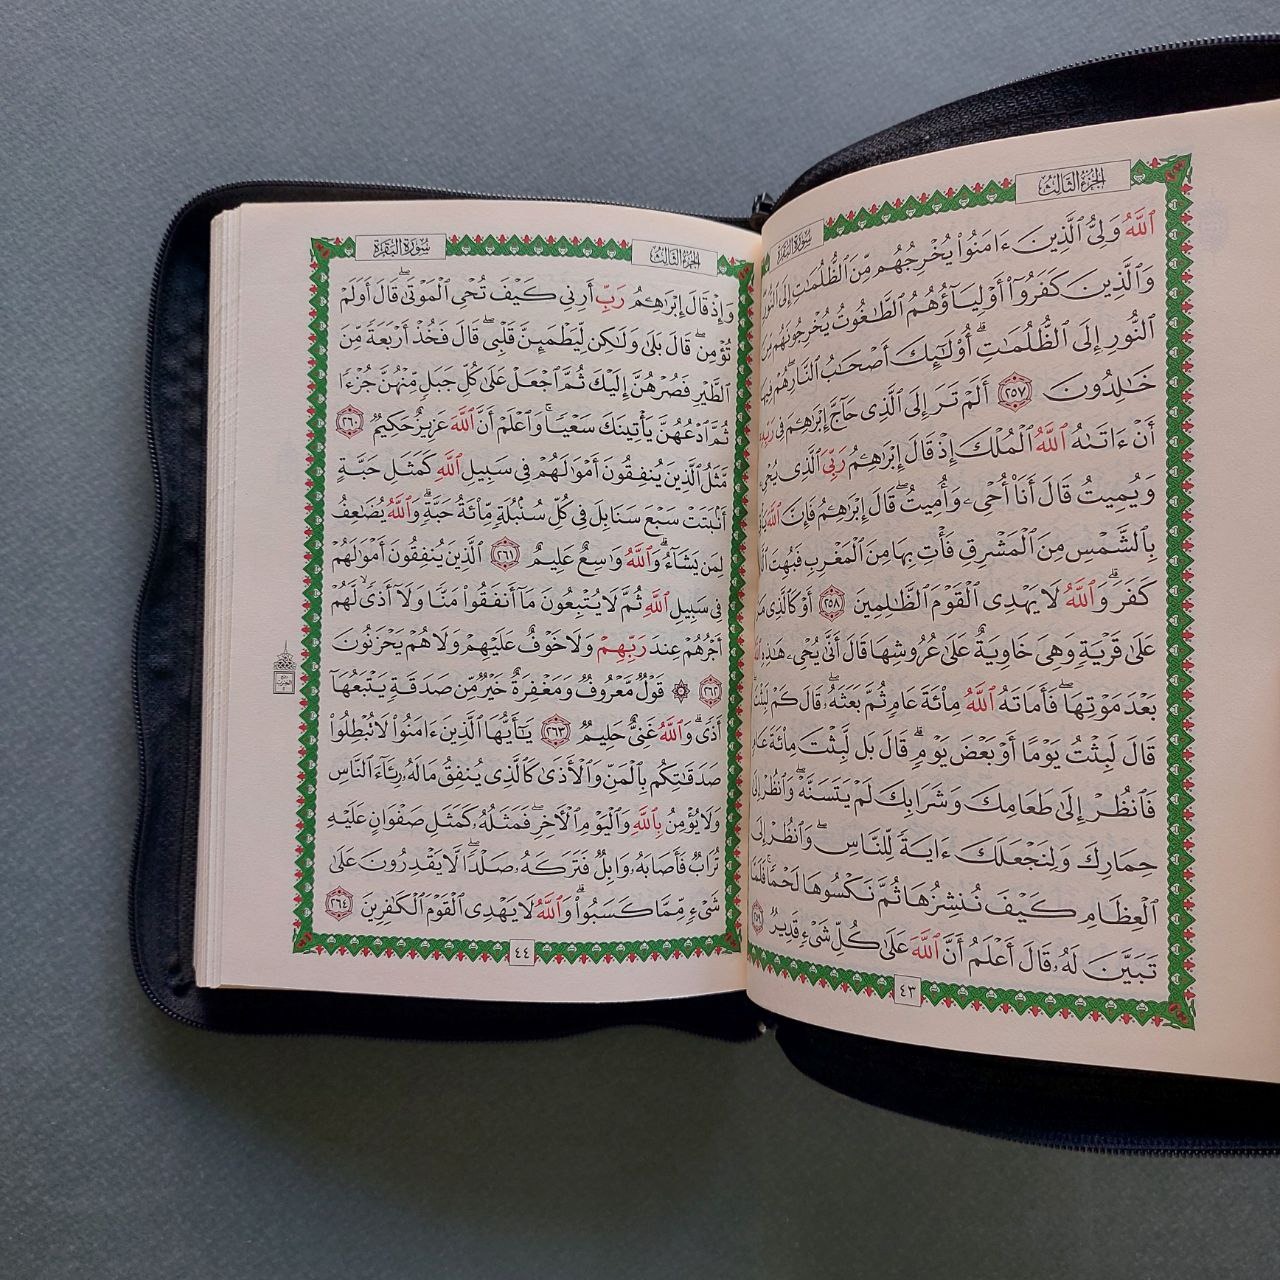 الجزء الثالث
سورة البقرة
ٱللَّهُ وَلِىُّ ٱلَّذِينَ ءَامَنُوا۟ يُخْرِجُهُم مِّنَ ٱلظُّلُمَـٰتِ إِلَى ٱلنُّورِ
وَٱلَّذِينَ كَفَرُوٓا۟ أَوْلِيَآؤُهُمُ ٱلطَّـٰغُوتُ يُخْرِجُونَهُم مِّنَ
ٱلنُّورِ إِلَى ٱلظُّلُمَـٰتِ ۗ أُو۟لَـٰٓئِكَ أَصْحَـٰبُ ٱلنَّارِ ۖ هُمْ فِيهَا
خَـٰلِدُونَ ٢٥٧ أَلَمْ تَرَ إِلَى ٱلَّذِى حَآجَّ إِبْرَٰهِـۧمَ فِى رَبِّهِۦٓ
أَنْ ءَاتَىٰهُ ٱللَّهُ ٱلْمُلْكَ إِذْ قَالَ إِبْرَٰهِـۧمُ رَبِّىَ ٱلَّذِى يُحْىِۦ
وَيُمِيتُ قَالَ أَنَا۠ أُحْىِۦ وَأُمِيتُ ۖ قَالَ إِبْرَٰهِـۧمُ فَإِنَّ ٱللَّهَ يَأْتِى
بِٱلشَّمْسِ مِنَ ٱلْمَشْرِقِ فَأْتِ بِهَا مِنَ ٱلْمَغْرِبِ فَبُهِتَ ٱلَّذِى
كَفَرَ ۗ وَٱللَّهُ لَا يَهْدِى ٱلْقَوْمَ ٱلظَّـٰلِمِينَ ٢٥٨ أَوْ كَٱلَّذِى مَرَّ
عَلَىٰ قَرْيَةٍ وَهِىَ خَاوِيَةٌ عَلَىٰ عُرُوشِهَا قَالَ أَنَّىٰ يُحْىِۦ هَـٰذِهِ ٱللَّهُ
بَعْدَ مَوْتِهَا ۖ فَأَمَاتَهُ ٱللَّهُ مِا۟ئَةَ عَامٍ ثُمَّ بَعَثَهُۥ ۖ قَالَ كَمْ لَبِثْتَ ۖ
قَالَ لَبِثْتُ يَوْمًا أَوْ بَعْضَ يَوْمٍ ۖ قَالَ بَل لَّبِثْتَ مِا۟ئَةَ عَامٍ
فَٱنظُرْ إِلَىٰ طَعَامِكَ وَشَرَابِكَ لَمْ يَتَسَنَّهْ ۖ وَٱنظُرْ إِلَىٰ
حِمَارِكَ وَلِنَجْعَلَكَ ءَايَةً لِّلنَّاسِ ۖ وَٱنظُرْ إِلَى
ٱلْعِظَامِ كَيْفَ نُنشِزُهَا ثُمَّ نَكْسُوهَا لَحْمًا ۚ فَلَمَّا
تَبَيَّنَ لَهُۥ قَالَ أَعْلَمُ أَنَّ ٱللَّهَ عَلَىٰ كُلِّ شَىْءٍ قَدِيرٌ ٢٥٩
٤٣
الجزء الثالث
سورة البقرة
وَإِذْ قَالَ إِبْرَٰهِـۧمُ رَبِّ أَرِنِى كَيْفَ تُحْىِ ٱلْمَوْتَىٰ ۖ قَالَ أَوَلَمْ
تُؤْمِن ۖ قَالَ بَلَىٰ وَلَـٰكِن لِّيَطْمَئِنَّ قَلْبِى ۖ قَالَ فَخُذْ أَرْبَعَةً مِّنَ
ٱلطَّيْرِ فَصُرْهُنَّ إِلَيْكَ ثُمَّ ٱجْعَلْ عَلَىٰ كُلِّ جَبَلٍ مِّنْهُنَّ جُزْءًا
ثُمَّ ٱدْعُهُنَّ يَأْتِينَكَ سَعْيًا ۚ وَٱعْلَمْ أَنَّ ٱللَّهَ عَزِيزٌ حَكِيمٌ ٢٦٠
مَّثَلُ ٱلَّذِينَ يُنفِقُونَ أَمْوَٰلَهُمْ فِى سَبِيلِ ٱللَّهِ كَمَثَلِ حَبَّةٍ
أَنۢبَتَتْ سَبْعَ سَنَابِلَ فِى كُلِّ سُنۢبُلَةٍ مِّا۟ئَةُ حَبَّةٍ ۗ وَٱللَّهُ يُضَـٰعِفُ
لِمَن يَشَآءُ ۗ وَٱللَّهُ وَٰسِعٌ عَلِيمٌ ٢٦١ ٱلَّذِينَ يُنفِقُونَ أَمْوَٰلَهُمْ
فِى سَبِيلِ ٱللَّهِ ثُمَّ لَا يُتْبِعُونَ مَآ أَنفَقُوا۟ مَنًّا وَلَآ أَذًى ۙ لَّهُمْ
أَجْرُهُمْ عِندَ رَبِّهِمْ وَلَا خَوْفٌ عَلَيْهِمْ وَلَا هُمْ يَحْزَنُونَ
٢٦٢ ۞ قَوْلٌ مَّعْرُوفٌ وَمَغْفِرَةٌ خَيْرٌ مِّن صَدَقَةٍ يَتْبَعُهَآ
أَذًى ۗ وَٱللَّهُ غَنِىٌّ حَلِيمٌ ٢٦٣ يَـٰٓأَيُّهَا ٱلَّذِينَ ءَامَنُوا۟ لَا تُبْطِلُوا۟
صَدَقَـٰتِكُم بِٱلْمَنِّ وَٱلْأَذَىٰ كَٱلَّذِى يُنفِقُ مَالَهُۥ رِئَآءَ ٱلنَّاسِ
وَلَا يُؤْمِنُ بِٱللَّهِ وَٱلْيَوْمِ ٱلْـَٔاخِرِ ۖ فَمَثَلُهُۥ كَمَثَلِ صَفْوَانٍ عَلَيْهِ
تُرَابٌ فَأَصَابَهُۥ وَابِلٌ فَتَرَكَهُۥ صَلْدًا ۖ لَّا يَقْدِرُونَ عَلَىٰ
شَىْءٍ مِّمَّا كَسَبُوا۟ ۗ وَٱللَّهُ لَا يَهْدِى ٱلْقَوْمَ ٱلْكَـٰفِرِينَ ٢٦٤
٤٤